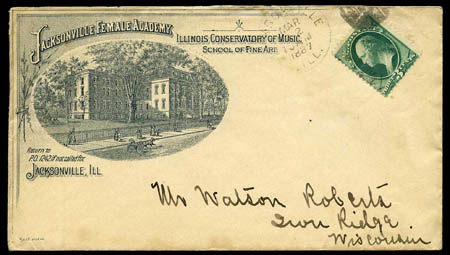 JACKSONVILLE FEMALE ACADEMY.
ILLINOIS CONSERVATORY OF MUSIC,
SCHOOL OF FINE ART
MAR
1887
ILL.
Return to
P.O. 1242, if not called for.
JACKSONVILLE, ILL.
Mr Watson Roberts
Iron Ridge.
Wisconsin